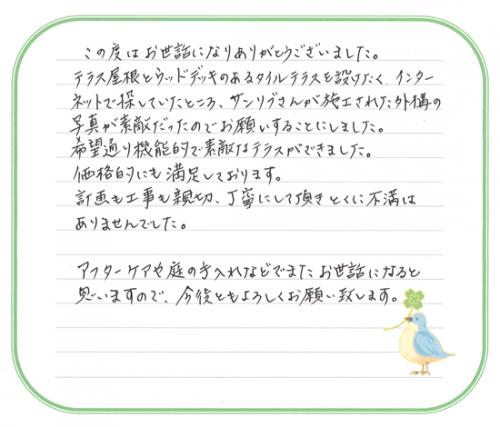 この度はお世話になりありがとうございました。
テラス屋根とウッドデッキのあるタイルテラスを設けたく、インター
ネットで探していたところ、サンリブさんが施工された外構の
写真が素敵だったのでお願いすることにしました。
希望通り機能的で素敵なテラスができました。
価格的にも満足しております。
計画も工事も親切、丁寧にして頂きとくに不満は
ありませんでした。
アフターケアや庭の手入れなどでまたお世話になると
思いますので、今後ともよろしくお願い致します。